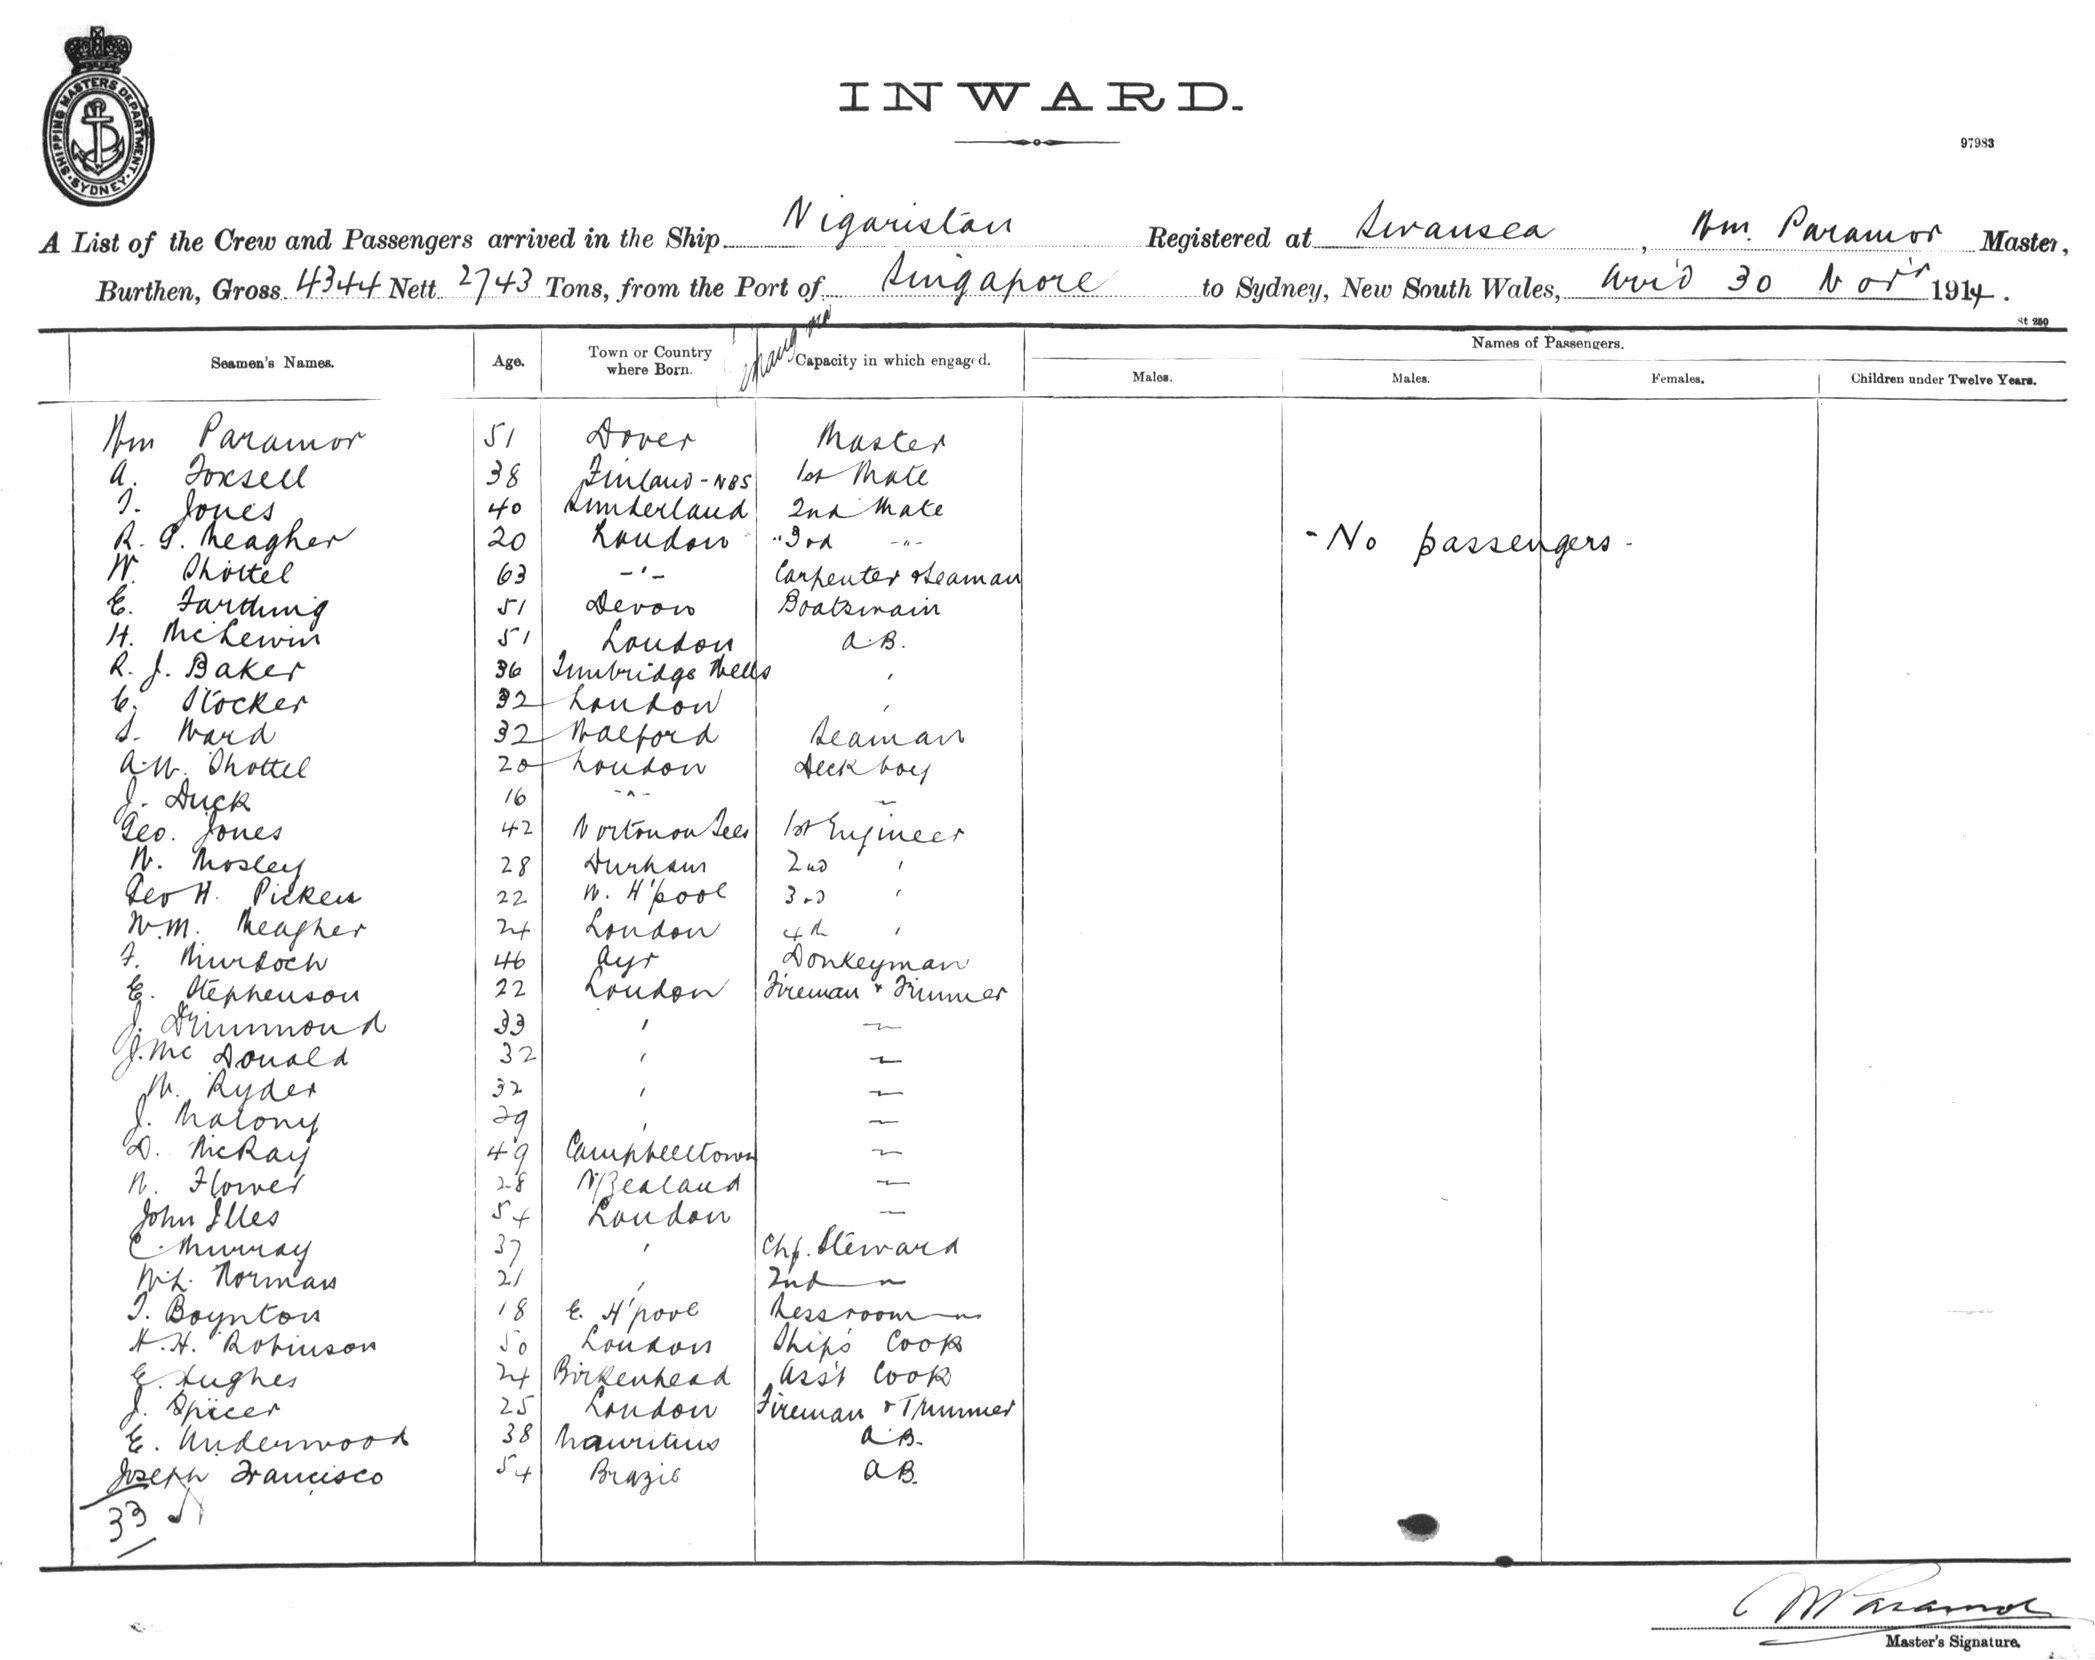 SHIPPING MASTERS DEPARTMENT. SYDNEY
INWARD.
97983
A List of the Crew and Passengers arrived in the Ship Nigaristan Registered at Swansea, Wm. Paramor Master,
Burthen, Gross 4344 Nett 2743 Tons, from the Port of Singapore to Sydney, New South Wales, Arr'd 30 Nov'r 1914.
St 250
Seamen's Names. Age. Town or Country where Born. Capacity in which engaged. Names of Passengers.
Males. Males. Females. Children under Twelve Years.
Wm Paramor 51 Dover Master
A. Foxsell 38 Finland - NBS 1st Mate
T. Jones 40 Sunderland 2nd Mate
R. G. Meagher 20 London " 3rd -"-
- No passengers -
W. Shottel 63 -"- Carpenter & Seaman
E. Farthing 51 Devon Boatswain
H. McLewin 51 London A.B.
R. J. Baker 36 Tunbridge Wells "
E. Stocker 32 London "
S. Ward 32 Walford Seaman
A.W. Shottel 20 London Deck boy
J. Duck 16 -"- "
Geo. Jones 42 Norton on Tees 1st Engineer
W. Mosley 28 Durham 2nd "
Geo H. Picken 22 W. H'pool 3rd "
W.M. Meagher 24 London 4th "
F. Murdoch 46 Ayr Donkeyman
E. Stephenson 22 London Fireman & Trimmer
J. Drummond 33 " "
J. McDonald 32 " "
W. Ryder 32 " "
J. Malony 29 " "
D. McRay 49 Campbelltown "
W. Flower 28 N/Zealand "
John Illes 54 London "
C. Murray 37 " Chf. Steward
W.L. Norman 21 " 2nd "
T. Boynton 18 E. H'pool Messroom "
H. H. Robinson 50 London Ship's Cook
E. Hughes 24 Birkenhead Ass't Cook
J. Spicer 25 London Fireman & Trimmer
E. Underwood 38 Mauritius A.B.
Joseph Francisco 54 Brazil A.B.
33
W Paramor
Master's Signature.